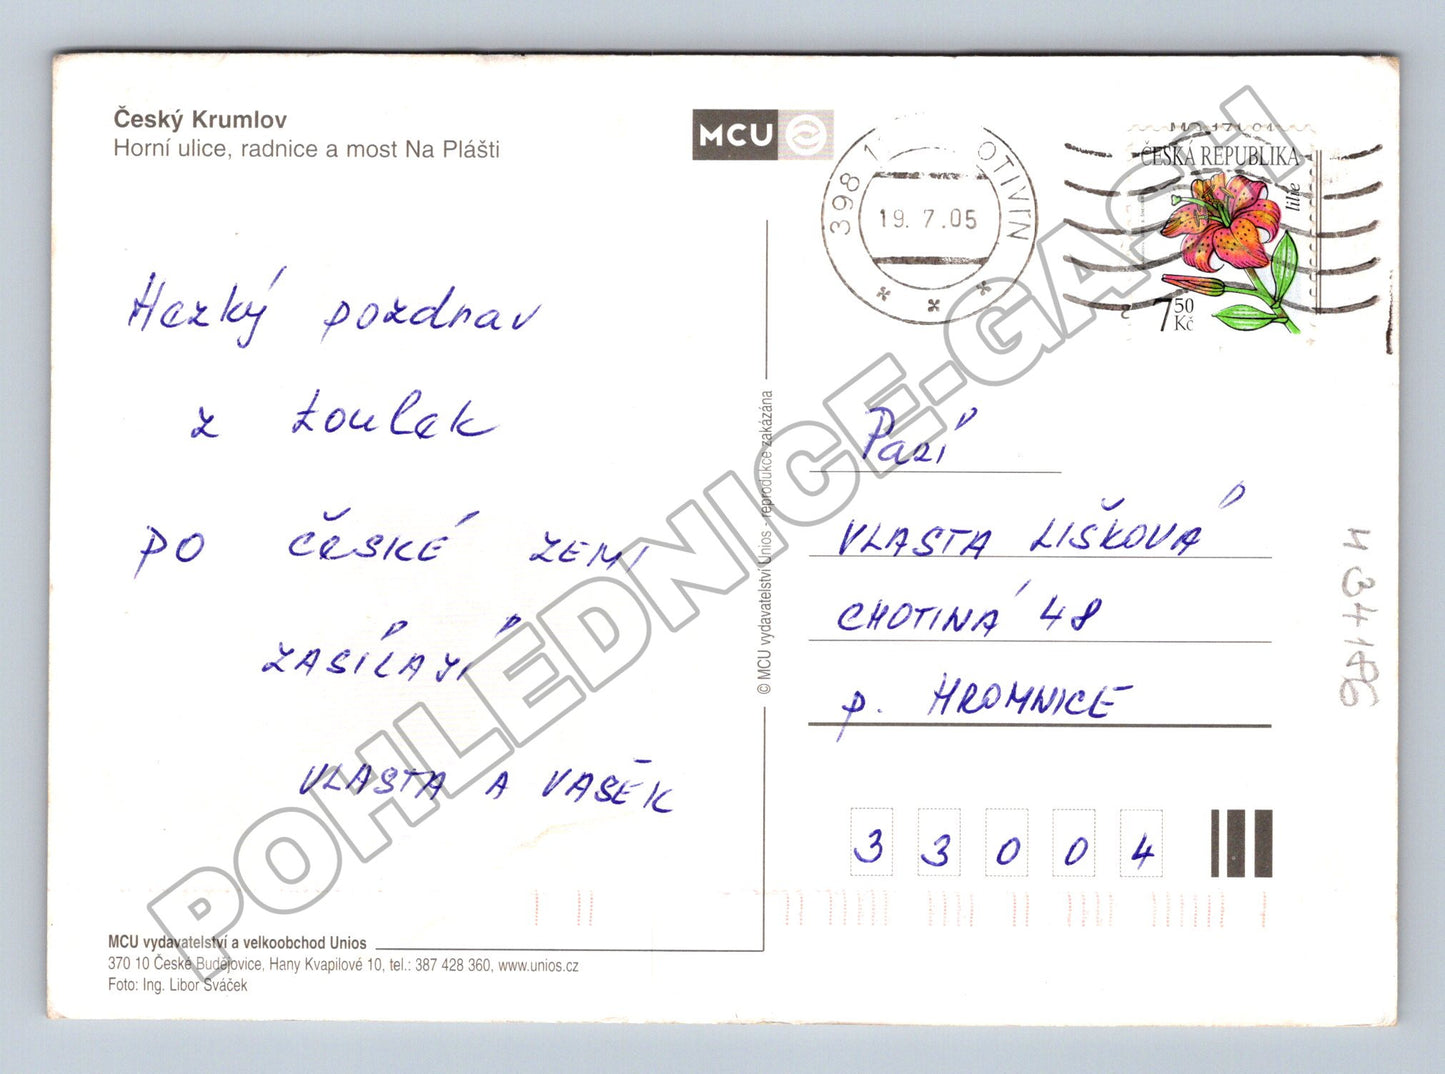 Český Krumlov
Horní ulice, radnice a most Na Plášti
MCU
398 1 OTIVÍN
19. 7.05
ČESKÁ REPUBLIKA
lilie
7 50
Kč
Hezký pozdrav
z toulek
PO ČESKÉ ZEMI
ZASÍLAJÍ
VLASTA A VAŠEK
Paní
VLASTA LIŠKOVÁ
CHOTINÁ 48
p. HROMNICE
33004
© MCU vydavatelství Unios - reprodukce zakázána
MCU vydavatelství a velkoobchod Unios
370 10 České Budějovice, Hany Kvapilové 10, tel.: 387 428 360, www.unios.cz
Foto: Ing. Libor Sváček
POHLEDNICE-GASH